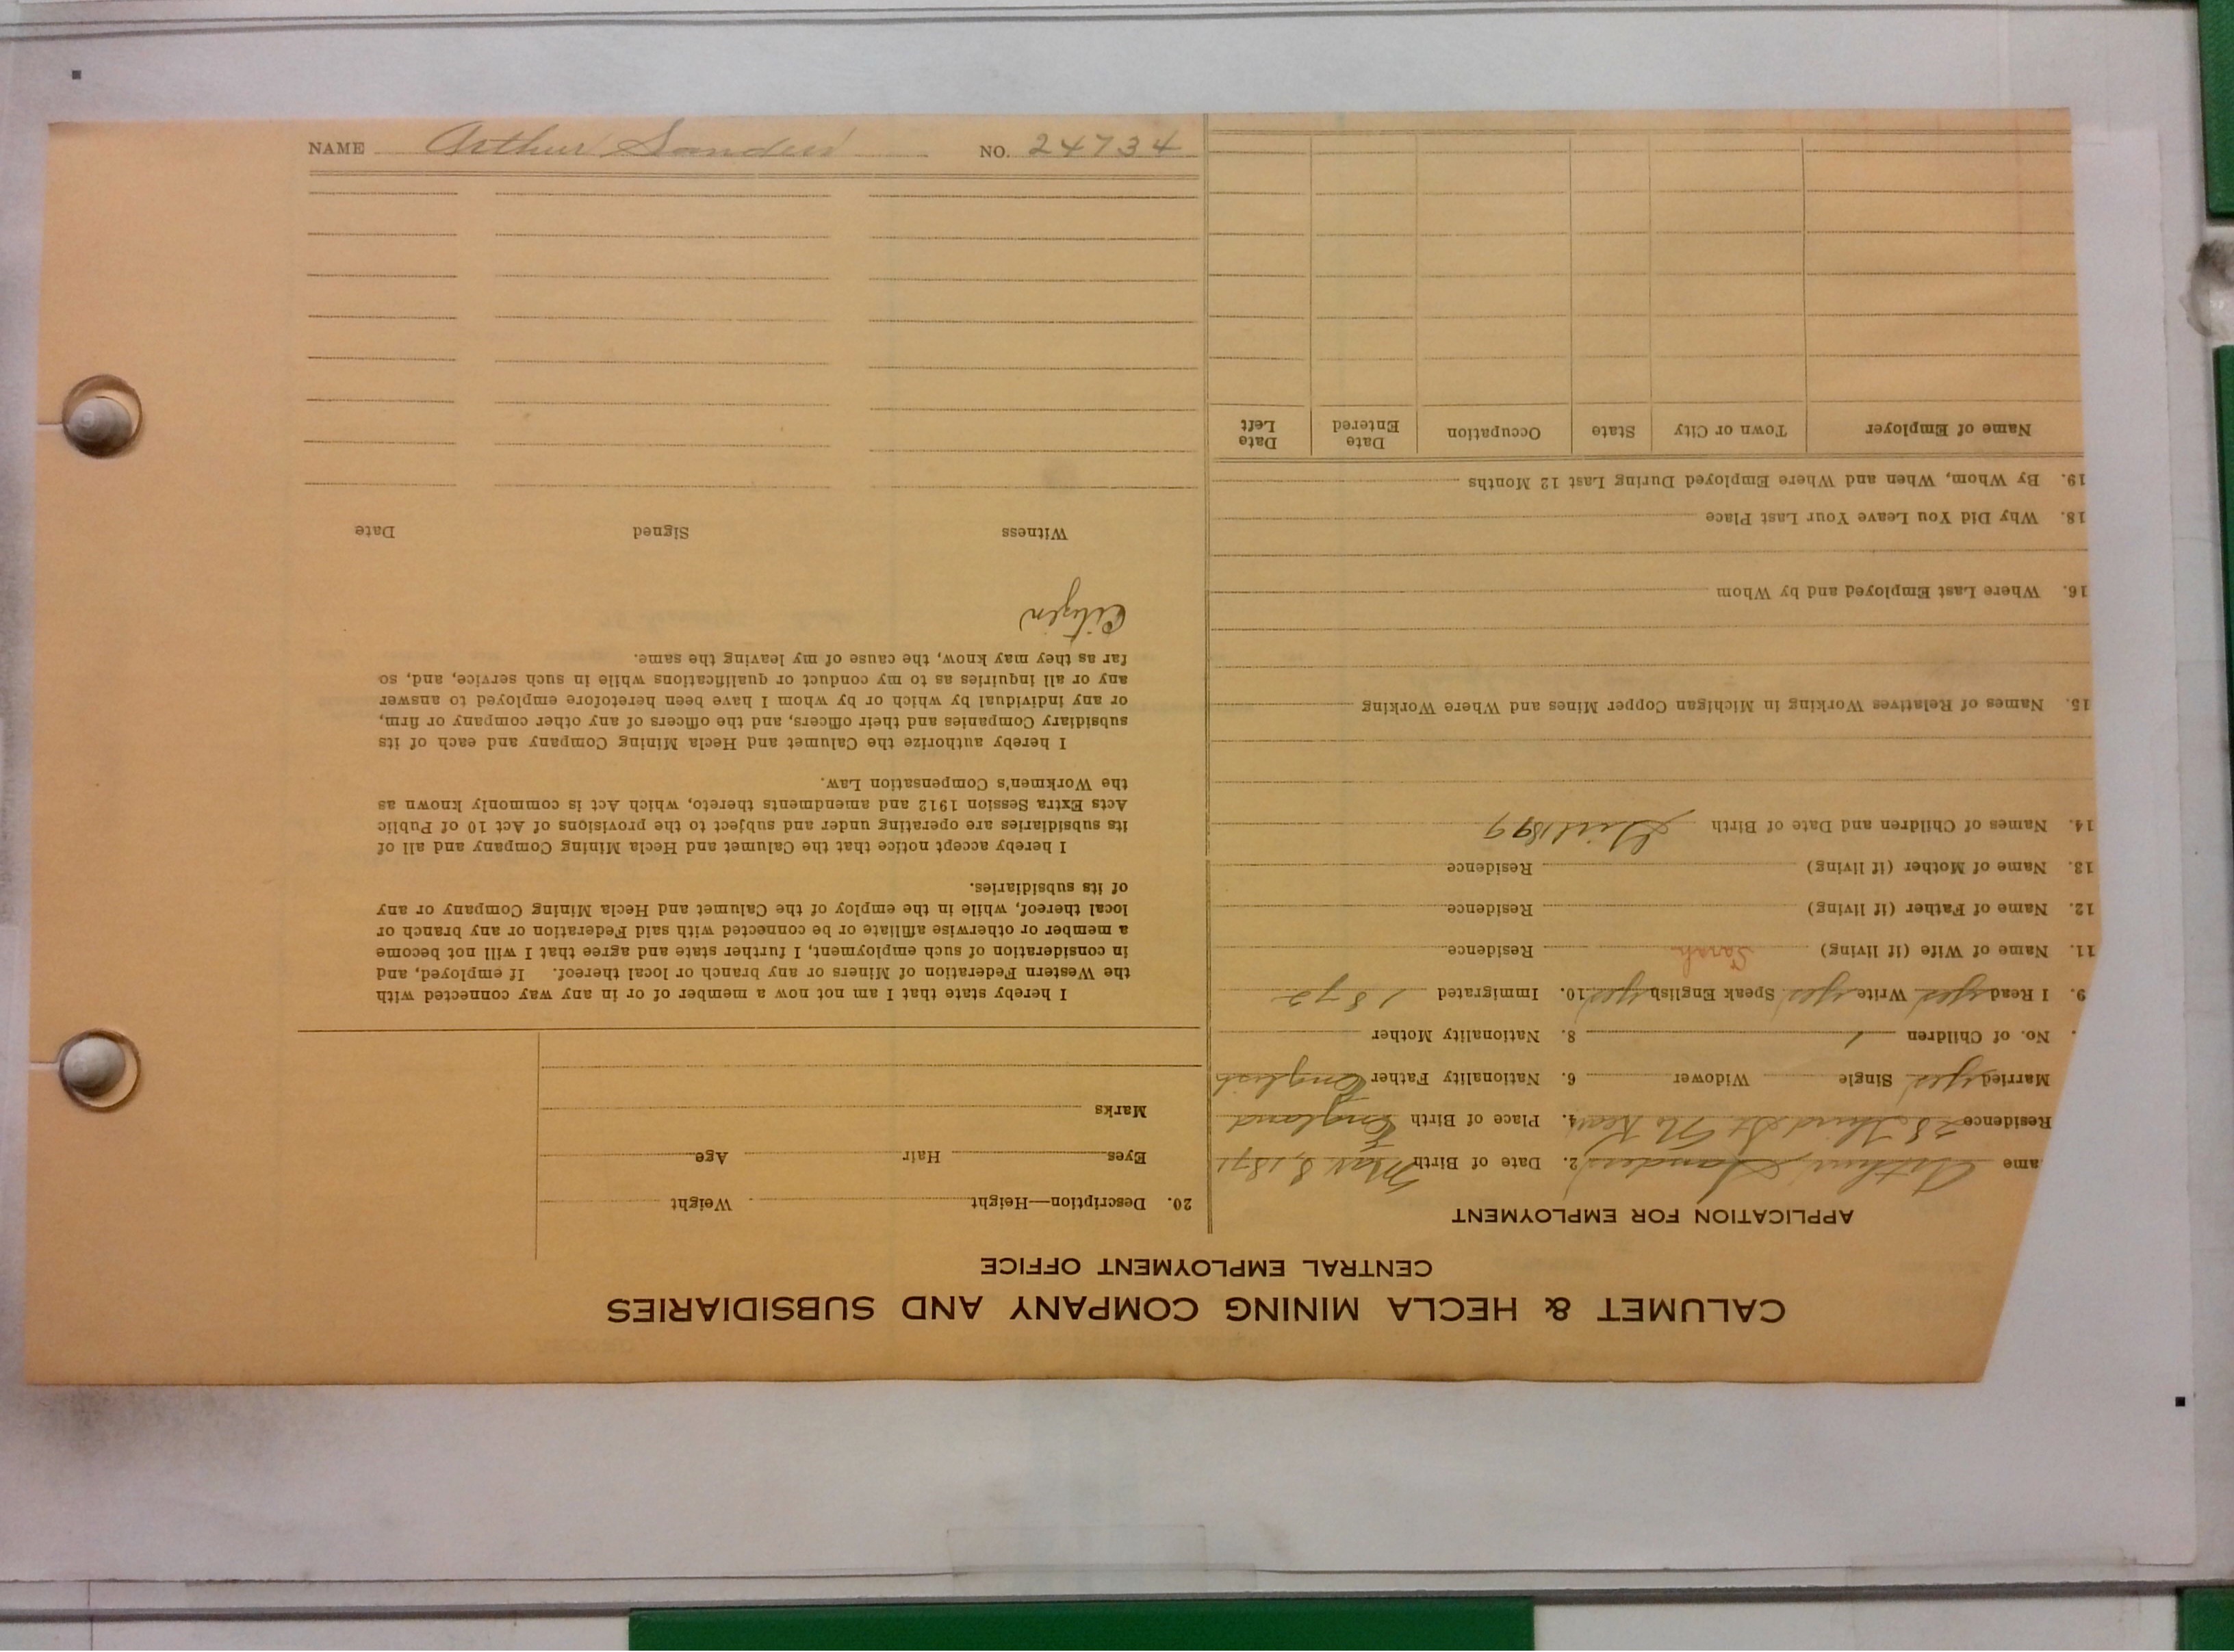 NAME Arthur Sanders NO. 24734
CALUMET & HECLA MINING COMPANY AND SUBSIDIARIES
CENTRAL EMPLOYMENT OFFICE
APPLICATION FOR EMPLOYMENT
ame Arthur Sanders 2. Date of Birth Mar 8, 1871
Residence 28 Third St. 4. Place of Birth England
Married yes Single Widower 6. Nationality Father English
. No. of Children 1 8. Nationality Mother
9. I Read yes Write yes Speak English yes 10. Immigrated 1872
11. Name of Wife (if living) Sarah Residence
12. Name of Father (if living) Residence
13. Name of Mother (if living) Residence
14. Names of Children and Date of Birth Girl 1899
15. Names of Relatives Working in Michigan Copper Mines and Where Working
16. Where Last Employed and by Whom
18. Why Did You Leave Your Last Place
19. By Whom, When and Where Employed During Last 12 Months
Name of Employer Town or City State Occupation Date Entered Date Left
20. Description—Height Weight
Eyes Hair Age
Marks
I hereby state that I am not now a member of or in any way connected with
the Western Federation of Miners or any branch or local thereof. If employed, and
in consideration of such employment, I further state and agree that I will not become
a member or otherwise affiliate or be connected with said Federation or any branch or
local thereof, while in the employ of the Calumet and Hecla Mining Company or any
of its subsidiaries.
I hereby accept notice that the Calumet and Hecla Mining Company and all of
its subsidiaries are operating under and subject to the provisions of Act 10 of Public
Acts Extra Session 1912 and amendments thereto, which Act is commonly known as
the Workmen's Compensation Law.
I hereby authorize the Calumet and Hecla Mining Company and each of its
subsidiary Companies and their officers, and the officers of any other company or firm,
or any individual by which or by whom I have been heretofore employed to answer
any or all inquiries as to my conduct or qualifications while in such service, and, so
far as they may know, the cause of my leaving the same.
Citizen
Witness Signed Date